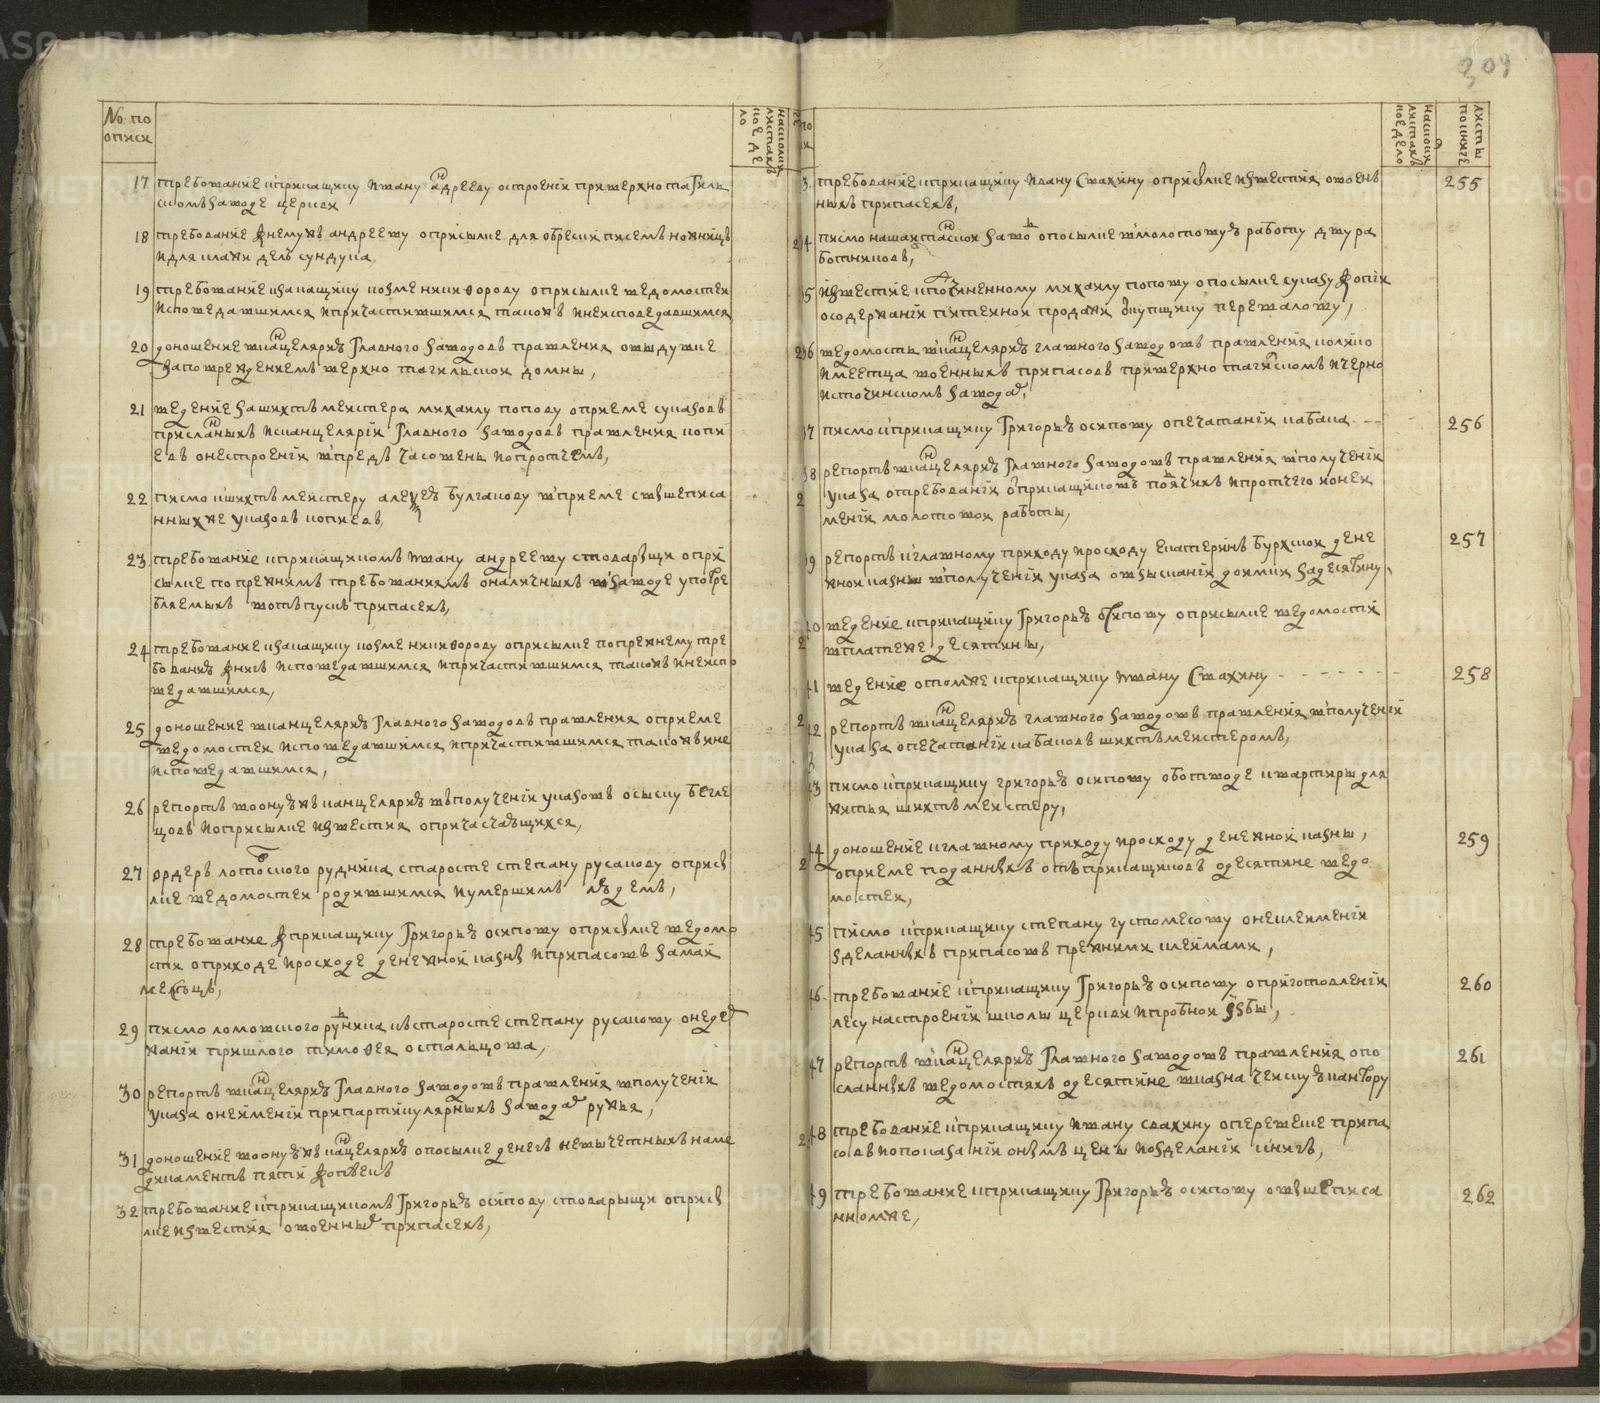 304
No по
описи
насколких
листахъ
кое де
ло
17 требование кприкащику Ивану андрееву остроенїи приверхнотагилъ
скомъ заводе церкви
18 требование кнемужъ андрееву оприсылке для обрески писемъ ножницъ
идля клажи делъ сундука,
19 требование кзакащику козме никифорову оприсылке ведомостеи
исповедавшимся ипричастившимся такожъ инеисповедавшимся
20 доношение вканцелярию Главного заводовъ правления овыдувке
заповреждениемъ верхно тагилскои домны,
21 ведение зашихтъмеистера михаилу попову оприеме указовъ
присланыхъ исканцелярїи Главного заводовъ правления копи
евъ онестроенїи впредь часовень ипротчемъ,
22 писмо кшихтъмеистеру алеѯею булгакову вприеме свышеписа
нныхже указовъ копиевъ,
23 требование кприкащикомъ Ивану андрееву стоварыщи опри
сылке попрежнимъ требованиямъ оналичныхъ взаводе употре
бляемыхъ вотъпускъ припасехъ,
24 требование кзакащику козме никифорову оприсылке попрежнему тре
бованию книгъ исповедавшимся ипричастившимся такожъ инеиспо
ведавшимся,
25 доношение вканцелярию Главного заводовъ правления оприеме
ведомостеи исповедавшимся ипричастившимся такожъ ине
исповедавшимся,
26 репортъ воонуюжъ канцелярию вполученїи указовъ осыску бегле
цовъ ипоприсылке известия опричасчающихся,
27 ордеръ рудника старосте степану русакову оприсы
лке ведомостеи родившимся иумершимъ людемъ,
28 требование кприкащику Григорью осипову оприсылке ведомо
сти оприходе ирасходе денежнои казны иприпасовъ замаи
месецъ,
29 писмо ломовского рудника къстаросте степану русакову онедер
жанїи пришлого тимофея осталцова,
30 репортъ вканцелярию Главного заводовъ правления вполученїи
указа онеименїи припартикулярныхъ заводах ружья,
31 доношение воонуюжъ канцелярию опосылке денегъ невычетныхъ наме
дикаментъ пяти копеекъ
32 требование кприкащикомъ Григорью осипову стоварыщи оприсы
лке известия овоенных припасехъ,
листы
покниге
3. требование кприкащику Ивану Свахину оприсылке известия овоен
ныхъ припасехъ,
34 писмо нашаитанскои завод опосылке вмолотовую работу двухъ ра
ботниковъ,
35 известие кпочиненному михаилу попову опосылке суказу копїи
осодержанїи питеинои продажи купцу перевалову,
36 ведомость вканцелярию главного заводовъ правления колико
имеетца военныхъ припасовъ приверхно тагилскомъ ичерно
источинскомъ заводах,
37 писмо кприкащику Григорью осипову опечатанїи кабака - - -
38 репортъ вканцелярию Главного заводовъ правления вполученїи
указа отребованїи сприкащиковъ подячихъ ипротчего
менїи молотовои работы,
39 репортъ кглавному приходу ирасходу Екатеринъ Бурхскои дене
жнои казны вполученїи указа овзысканїи доимки задесятину,
40 ведение кприкащику Григорью осипову оприсылке ведомостїи
вплатеже десятины,
41 ведение отомже кприкащику Ивану Свахину - - - - - - -
42 репортъ вканцелярию главного заводовъ правления вполученїи
указа опечатанїи кабаковъ шихтъмеистеромъ,
43 писмо кприкащику григорью осипову оботводе квартиры для
житья шихтъмеистеру,
44 доношение кглавному приходу ирасходу денежнои казны,
оприеме поданныхъ отъприкащиковъ одесятине ведо
мостеи,
45 писмо кприкащику степану густомесову онеклеименїи
зделанныхъ припасовъ прежними клеимами,
46 требование кприкащику Григорью осипову опригоовленїи
лесу настроенїи школы церкви ипробнои избы,
47 репортъ вканцелярию Главного заводовъ правления опо
сланныхъ ведомостяхъ одесятине вказначеискую кантору
48 требование кприкащику Ивану свахину оперевеске припа
совъ ипопоказанїи онымъ цены изделанїи книгъ,
49 требование кприкащику Григорью осипову овышеписа
нномже,
255
256
257
258
259
260
261
262
METRIKI.GASO-URAL.RU